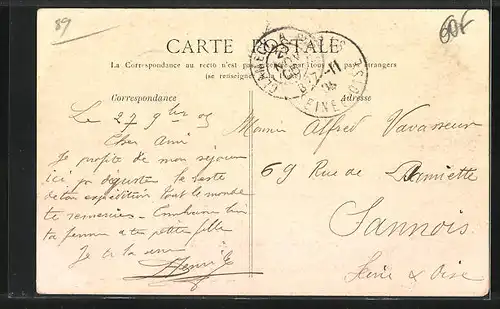 89
60F
CARTE POSTALE
La Correspondance au recto n'est pas pays étrangers
(se renseigner
Correspondance
Adresse
Le 27 9bre 05
Cher Ami
Je profite de mon séjour
ici pr déguster le reste
de ton expédition tout le monde
te remercies - Embrasse bien
ta femme & ta petite fille
Je te la serre
Henri
Monsieur Alfred Vavasseur
69 Rue de
Sannois
Seine & Oise